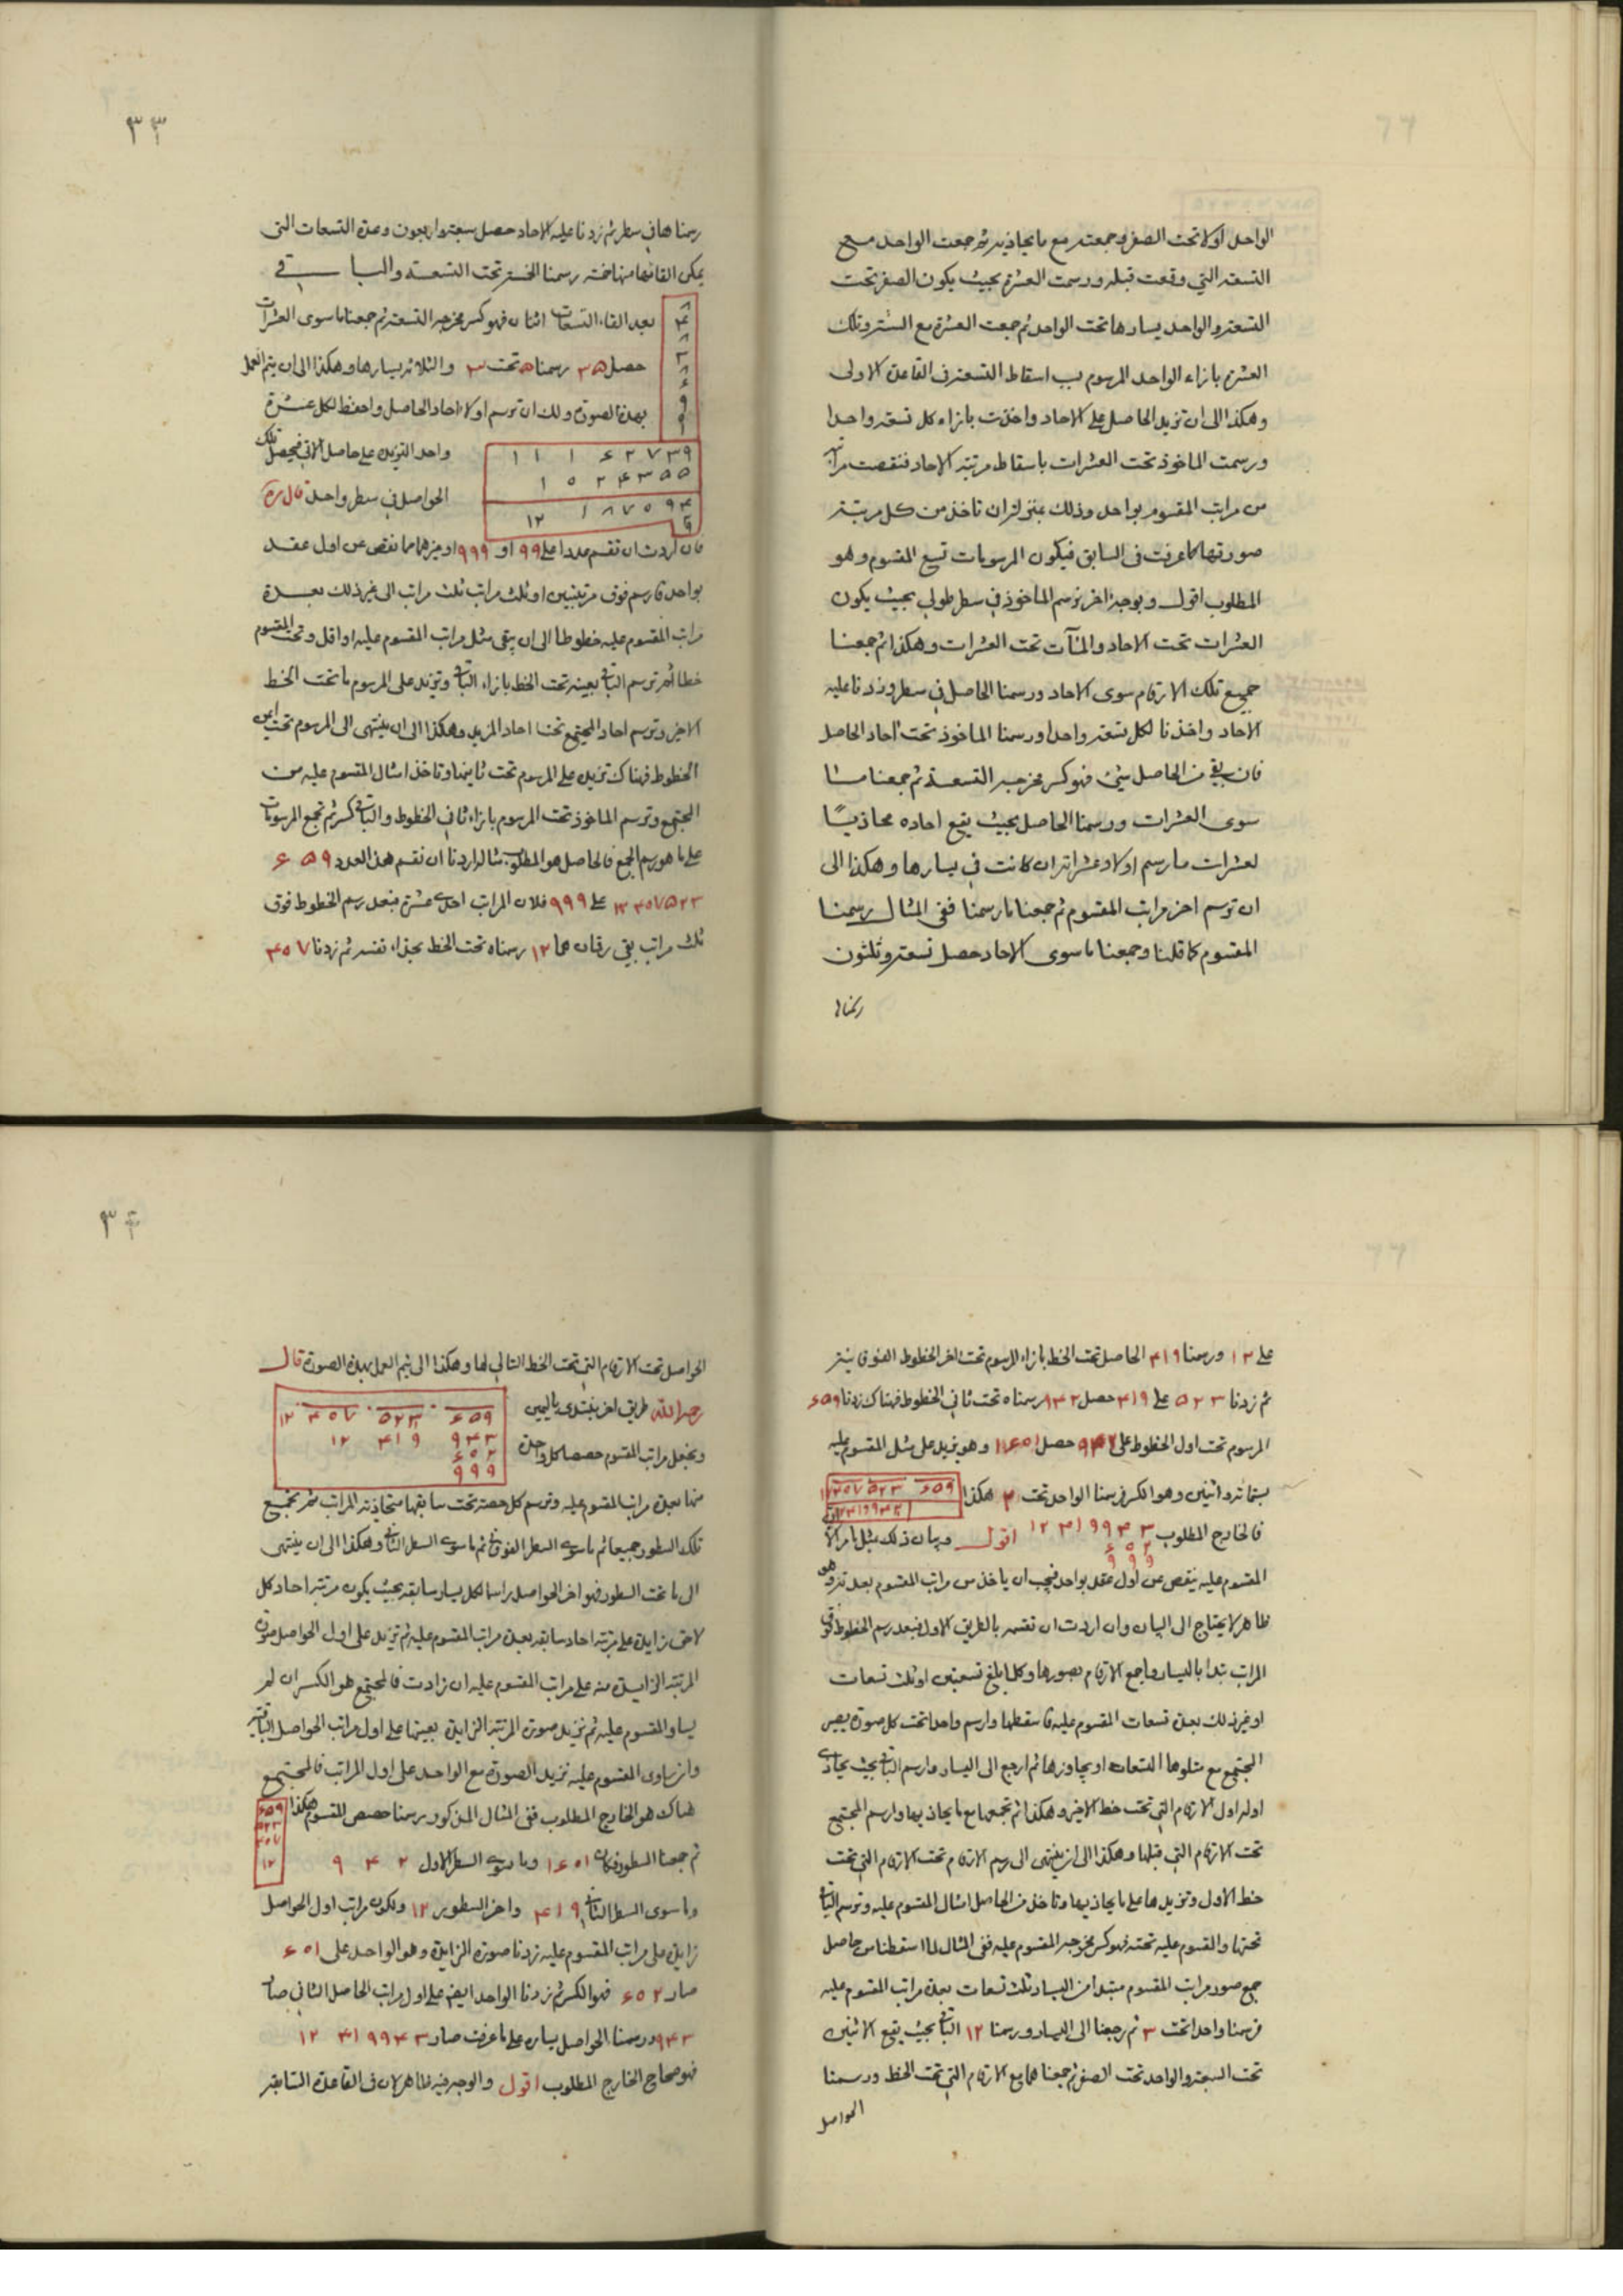 الواحل اولا تحت الصفر وجمعته مع ما يحاذيه ثم جمعت الواحل مع
التسعة التي وقعت قبله ورسمت العشرة بحيث يكون الصفر تحت
التسعة والواحد يسارها تحت الواحد ثم جمعت العشرة مع الستة وتلك
العشرة بازاء الواحد المرسوم اسقاط التسعة في القاعدة الاولى
وهكذا الى ان تزيد الحاصل على الاحاد واخذت بازاء كل تسعة واحدا
ورسمت الماخوذ تحت العشرات باسقاط مرتبة الاحاد فنقصت
من مراتب المقسوم بواحد وذلك بمنزلة ان تاخذ من كل مرتبة
صورتها كما عرفت في السابق فيكون المرسومات تسع المقسوم وهو
المطلوب اقول وبوجه اخر نرسم الماخوذ في سطر طولي بحيث يكون
العشرات تحت الاحاد والمآت تحت العشرات وهكذا ثم جمعنا
جميع تلك الارقام سوى الاحاد ورسمنا الحاصل في سطر وزدنا عليه
الاحاد واخذنا لكل تسعة واحدا ورسمنا الماخوذ تحت احاد الحاصل
فان بقي من الحاصل شيء فهو كسر مخرجه التسعة ثم جمعنا
سوى العشرات ورسمنا الحاصل بحيث يقع احاده محاذيا
لعشرات ما رسم اولا وعشراته ان كانت في يسارها وهكذا الى
ان نرسم اخر مراتب المقسوم ثم جمعنا ما رسمنا ففي المثال رسمنا
المقسوم كما قلنا وجمعنا ما سوى الاحاد حصل تسعة وثلثون
رسمنا
٣٣
رسمناها في سطر ثم زدنا عليه الاحاد حصل سبعة واربعون وعدة التسعات التي
يمكن القائها منها خمسة رسمنا الخمسة تحت التسعة والباقي
بعد القاء التسعات اثنان فهو كسر مخرجه التسعة ثم جمعنا ما سوى العشرات
حصل ٣٥ رسمنا ٥ تحت ٣ والثلاثة يسارها وهكذا الى ان يتم العمل
بهذه الصورة ولك ان ترسم اولا احاد الحاصل واحفظ لكل عشرة
واحد التزيده على حاصل الاتي فيحصل تلك
الحواصل في سطر واحد قال ره
٨
٤
٨
٣
٨
٦
٩
١
١ ١ ١ ٦ ٢ ٧ ٣ ٩
١ ٥ ٢ ٤ ٣ ٥ ٥
١٢ ١ ٨ ٧ ٥ ٩ ٤
فان اردت ان تقسم عددا على ٩٩ او ٩٩٩ او غيرهما مما نقص عن اول عقد
بواحد فارسم فوق مرتبتين او ثلث مراتب ثلث مراتب الى غير ذلك بعدة
مراتب المقسوم عليه خطوطا الى ان يبقى مثل مراتب المقسوم عليه او اقل وتحت المقسوم
خطا ثم ترسم الباقي بعينه تحت الخط بازاء الباقي وتزيد على المرسوم ما تحت الخط
الاخير وترسم احاد المجتمع تحتا احاد المزيد وهكذا الى ان ينتهي الى المرسوم تحت ايمن
الخطوط فهناك تزيد على المرسوم تحت ثانيها وتاخذ امثال المقسوم عليه من
المجتمع وترسم الماخوذ تحت المرسوم بازاء ثاني الخطوط والباقي كسر ثم تجمع المرسومات
على ما هو رسم الجمع فالحاصل هو المطلوب مثاله اردنا ان نقسم هذا العدد ٦٥٩
١٢٣٥٧٥٢٣ على ٩٩٩ فلان المراتب احدى عشرة فبعد رسم الخطوط فوق
ثلث مراتب بقي رقمان هما ١٢ رسمناه تحت الخط بحذاء نفسه ثم زدنا ٤٥٧
على ١٢ ورسمنا ٤١٩ الحاصل تحت الخط بازاء المرسوم تحت اخر الخطوط الفوقانية
ثم زدنا ٥٢٣ على ٤١٩ حصل ٩٤٢ رسمناه تحت ثاني الخطوط فهناك زدنا ٦٥٩
المرسوم تحت اول الخطوط على ٩٤٢ حصل ١٦٠١ وهو يزيد على مثل المقسوم عليه
بستمائة واثنين وهو الكسر فرسمنا الواحد تحت ٢ هكذا
٦٥٩ ٥٢٣ ٤٥٧ ١٢
فالخارج المطلوب ١٢ ٤١٩ ٩٤٣ اقول وبيان ذلك مثل ما مر لان
٦٠٢
٩٩٩
المقسوم عليه ينقص عن اول عقد بواحد فيجب ان ياخذ من مراتب المقسوم بعدته وهو
ظاهر لا يحتاج الى البيان وان اردت ان تقسمه بالطريق الاول فبعد رسم الخطوط فوق
المراتب تبدا باليسار واجمع الارقام بصورها وكلما بلغ تسعتين او ثلث تسعات
او غير ذلك بعدة تسعات المقسوم عليه فاسقطها وارسم واحدا تحت كل صورة يصير
المجتمع مع متلوها التسعات او يجاوزها ثم ارجع الى اليسار وارسم الباقي بحيث يحاذي
اوله اول الارقام التي تحت خط الاخير وهكذا ثم تجمعها مع ما يحاذيها وارسم المجتمع
تحت الارقام التي قبلها وهكذا الى ان ينتهي الى رسم الارقام تحت الارقام التي تحت
خط الاول وتزيدها على ما يحاذيها وتاخذ من الحاصل امثال المقسوم عليه وترسم الباقي
تحتها والمقسوم عليه تحته فهو كسر مخرجه المقسوم عليه ففي المثال لما اسقطنا من حاصل
جمع صور مراتب المقسوم مبتدا من اليسار ثلث تسعات بعدة مراتب المقسوم عليه
فرسمنا واحدا تحت ٣ ثم رجعنا الى اليسار ورسمنا ١٢ الباقي بحيث يقع الاثنين
تحت السبعة والواحد تحت الصفر ثم جمعناهما مع الارقام التي تحت الخط ورسمنا
الحواصل
٣٤
الحواصل تحت الارقام التي تحت الخط التالي لها وهكذا الى يتم العمل بهذه الصورة قال
رحمه الله طريق اخر نبتدى باليمين
ونجعل مراتب المقسوم حصصا كل واحدة
١٢ ٤٥٧ ٥٢٣ ٦٥٩
١٢ ٤١٩ ٩٤٣
٦٠٢
٩٩٩
منها بعدة مراتب المقسوم عليه ونرسم كل حصة تحت سابقها متحاذية المراتب ثم نجمع
تلك السطور جميعا ثم ما سوى السطر الفوقاني ثم ما سوى السطر الثاني وهكذا الى ان ينتهي
الى ما تحت السطور فهو اخر الحواصل راسما لكل يسار سابقه بحيث يكون مرتبة احاد كل
لاحق زايدة على مرتبة احاد سابقه بعدة مراتب المقسوم عليه ثم نزيد على اول الحواصل صورة
المرتبة الزايدة منه على مراتب المقسوم عليه ان زادت فالمجتمع هو الكسر ان لم
يساو المقسوم عليه ثم نزيد صورة المرتبة الزايدة بعينها على اول مراتب الحواصل الباقية
وان ساوى المقسوم عليه نزيد الصورة مع الواحد على اول المراتب فالمجتمع
هناك هو الخارج المطلوب ففي المثال المذكور رسمنا حصص المقسوم هكذا
٦٥٩
٥٢٣
٤٥٧
١٢
ثم جمعنا السطور فكان ١٦٥١ وما سوى السطر الاول ٩ ٤ ٢
وما سوى السطر الثاني ٤١٩ واخر السطور ١٢ ولكون مراتب اول الحواصل
زايدة على مراتب المقسوم عليه زدنا صورة الزايدة وهو الواحد على ٦٥١
صار ٦٥٢ فهو الكسر ثم زدنا الواحد ايضا على اول مراتب الحاصل الثاني صار
٩٤٣ ورسمنا الحواصل يساره على ما عرفت صار ١٢ ٤١٩٩٤٣
فهو صحاح الخارج المطلوب اقول والوجه فيه ظاهر لان في القاعدة السابقة